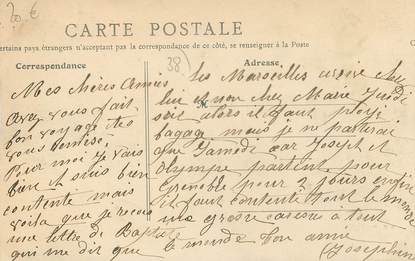 20 €
CARTE POSTALE
ertains pays étrangers n'acceptant pas la correspondance de ce côté, se renseigner à la Poste
38)
Correspondance
Mes chères Amies
Avez vous fait
bon voyage êtes
vous
Pour moi je vais
bien et suis bien
contente mais
voila que je recois
une lettre de Baptiste
qui me dit que
Adresse
les Marseillis arrive chez
lui et non chez Marie
soit alors il faut
bagage mais je ne partirai
que Samedi car Joseph et
Olympe partent pour
Grenoble pour 2 jours enfin
il faut contenté tout le monde
une grosse caresse a tout
le monde ton amie
Josephine